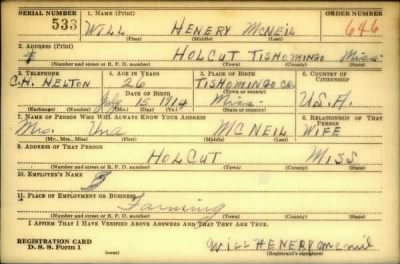 SERIAL NUMBER 1. NAME (Print) ORDER NUMBER
533 WILL HENERY MCNEIL 646
(First) (Middle) (Last)
2. ADDRESS (Print)
HOLCUT TISHOMINGO Miss
(Number and street or R. F. D. number) (Town) (County) (State)
3. TELEPHONE 4. AGE IN YEARS 5. PLACE OF BIRTH 6. COUNTRY OF CITIZENSHIP
C.H. NELTON 26 TISHOMINGO CO.
DATE OF BIRTH (Town or county)
July 15 1914 Miss. U.S.A.
(Exchange) (Number) (Mo.) (Day) (Yr.) (State or country)
7. NAME OF PERSON WHO WILL ALWAYS KNOW YOUR ADDRESS 8. RELATIONSHIP OF THAT PERSON
Mrs. Ona MCNEIL WIFE
(Mr., Mrs., Miss) (First) (Middle) (Last)
9. ADDRESS OF THAT PERSON
HOLCUT MISS
(Number and street or R. F. D. number) (Town) (County) (State)
10. EMPLOYER'S NAME
11. PLACE OF EMPLOYMENT OR BUSINESS
Farming
(Number and street or R. F. D. number) (Town) (County) (State)
I AFFIRM THAT I HAVE VERIFIED ABOVE ANSWERS AND THAT THEY ARE TRUE.
REGISTRATION CARD WILL HENERY McNeil
D. S. S. Form 1 (Registrant's signature)